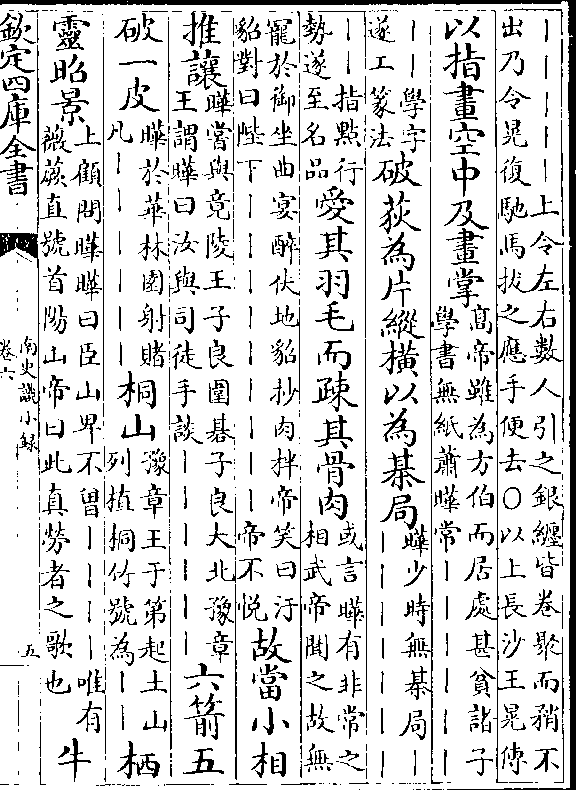 ｜｜｜｜｜上令左右數人引之銀纏皆卷聚而矟不
出乃令晃復馳馬拔之應手便去〇以上長沙王晃傳
以指畫空中及畫掌
髙帝雖為方伯而居處甚貧諸子
學書無紙蕭曄常｜｜｜｜｜
｜｜學字
遂工篆法
破荻為片縱橫以為棊局
曄少時無棊局｜
｜｜｜｜｜｜
｜｜指點行
勢遂至名品
愛其羽毛而疎其骨肉
或言曄有非常之
相武帝聞之故無
寵於御坐曲宴醉伏地貂抄肉拌帝笑曰汙
貂對曰陛下｜｜｜｜｜｜｜｜帝不悅
故當小相
推讓
曄嘗與竟陵王子良圍棊子良大北豫章
王謂曄曰汝與司徒手談｜｜｜｜｜｜
六箭五
破一皮
曄於華林園射賭
凡｜｜｜｜｜｜
桐山
豫章王于第起土山
列植桐竹號為｜｜
栖
靈昭景
上顧問曄曄曰臣山卑不曽｜｜｜｜｜唯有
薇蕨直號首陽山帝曰此真勞者之歌也
牛
欽定四庫全書
南史識小録
卷六
五